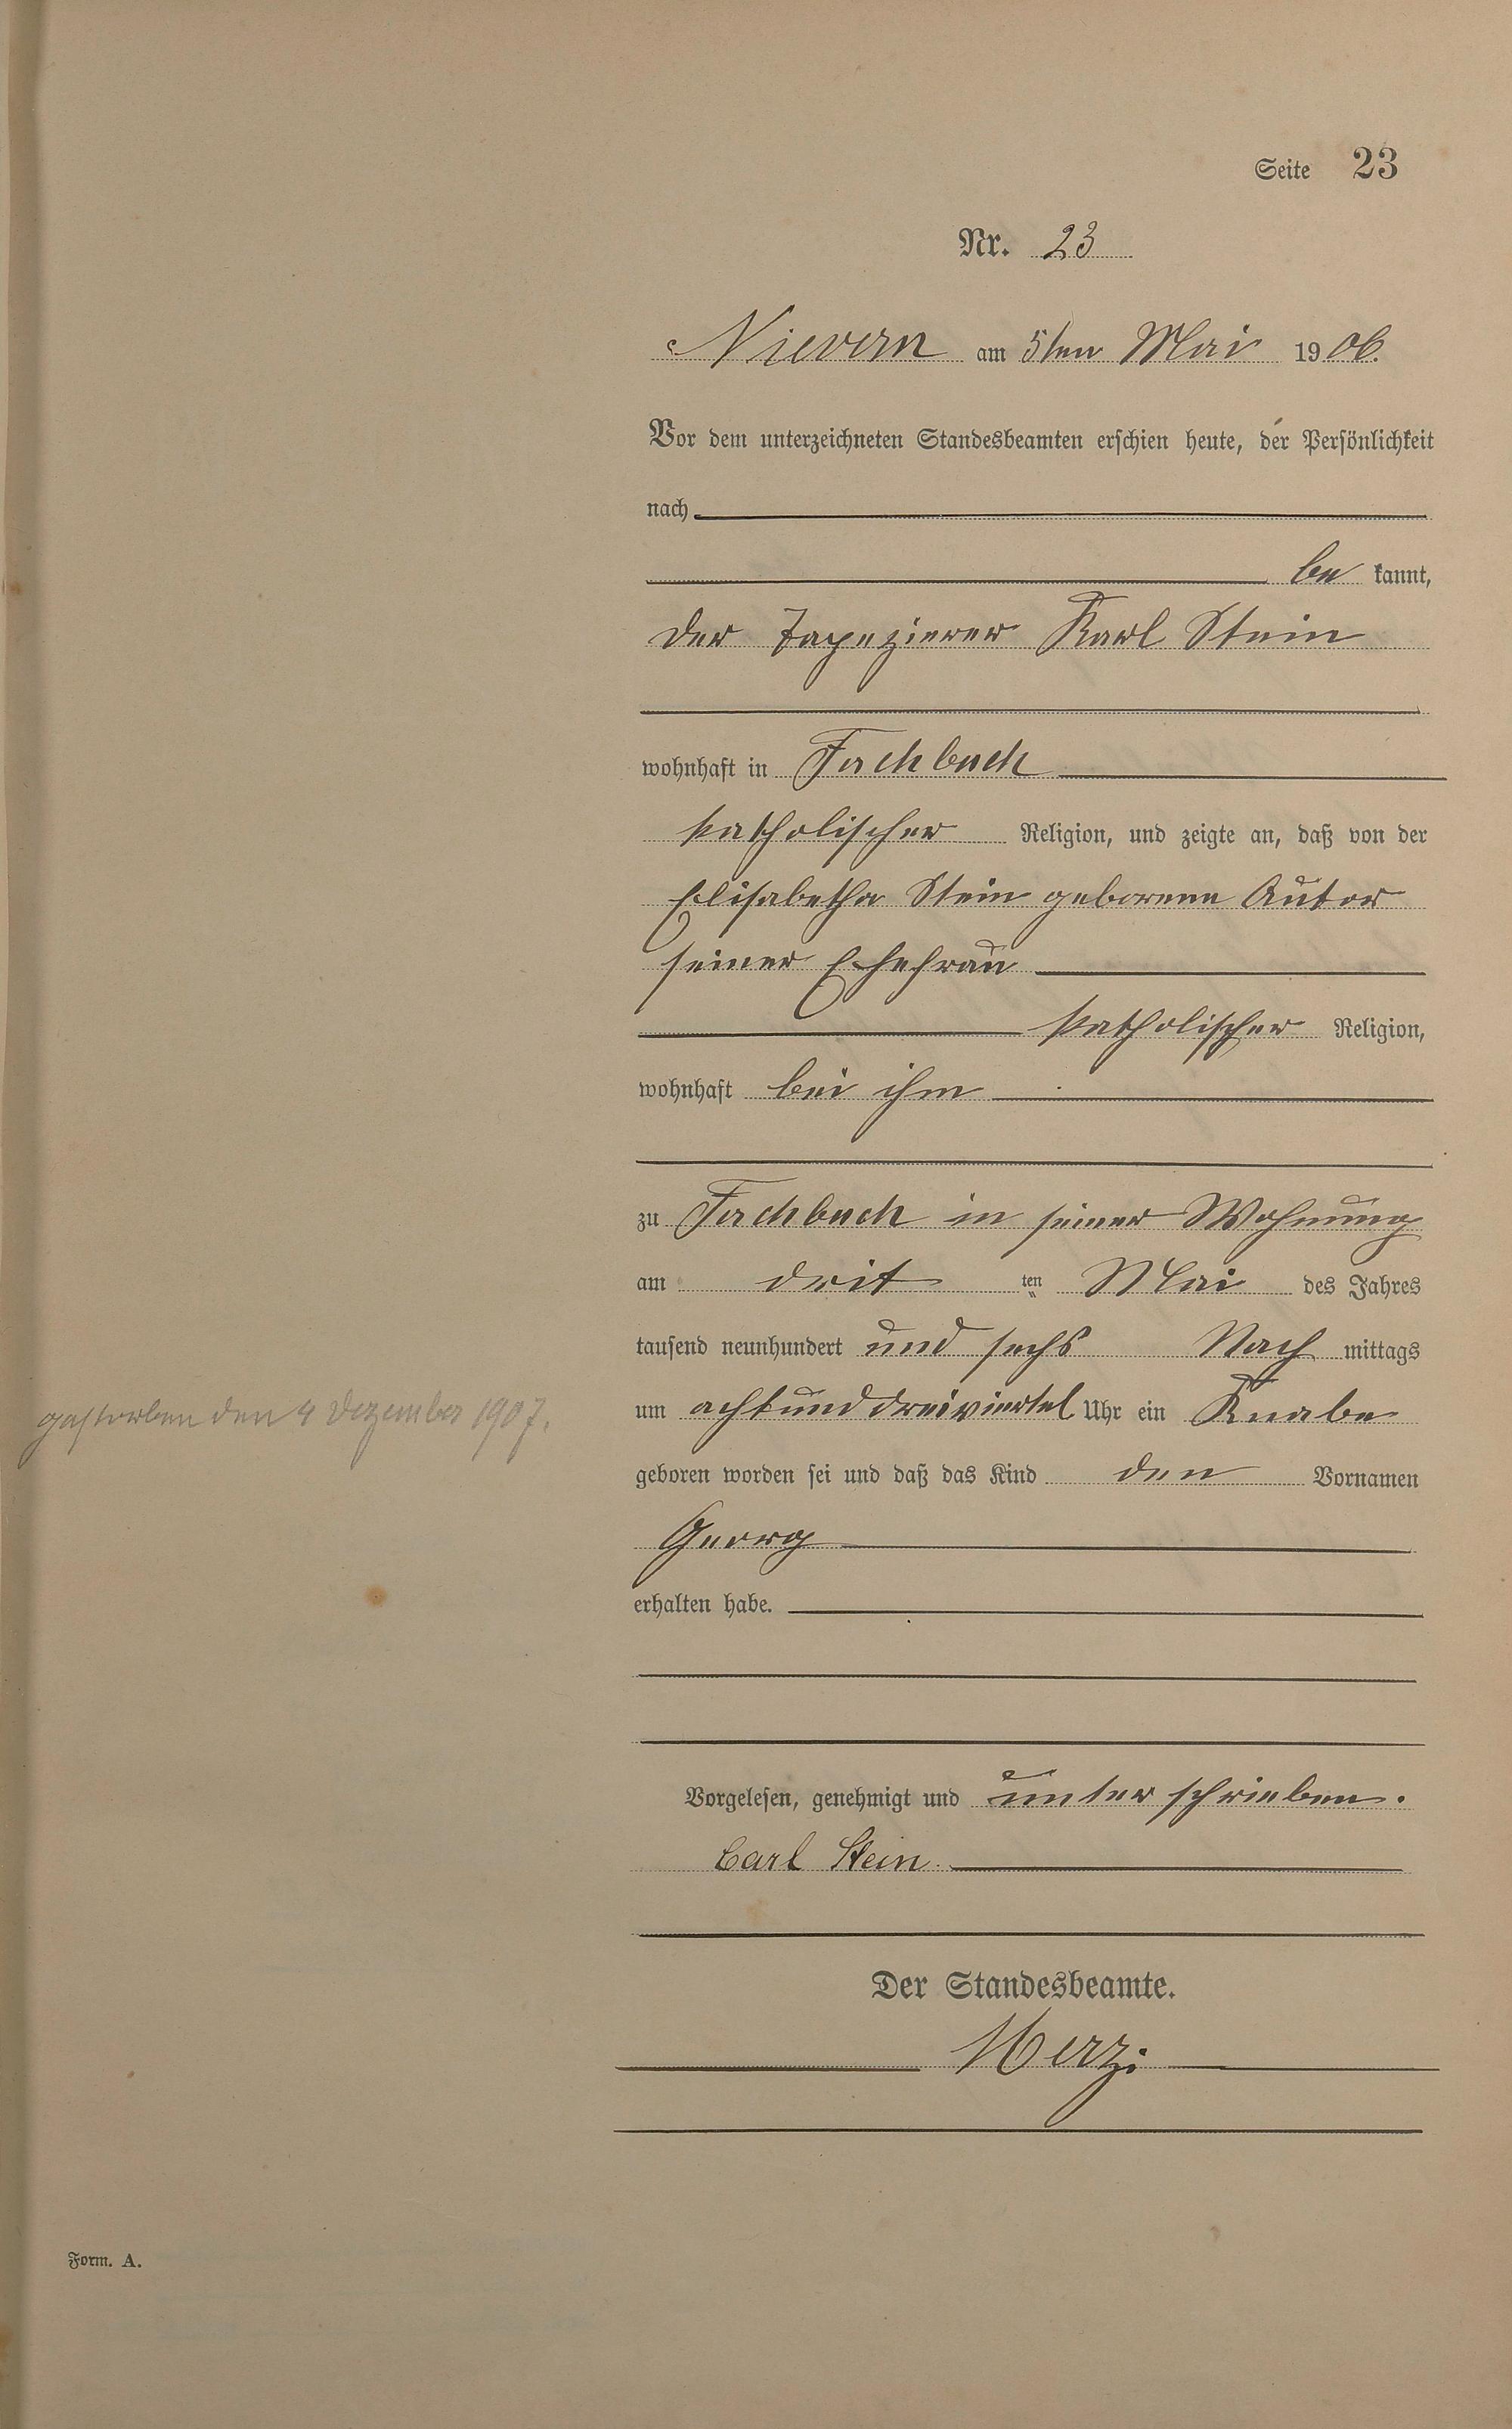 Seite 23
Nr. 23
Nievern am 5ten Mai 1906.
Vor dem unterzeichneten Standesbeamten erschien heute, der Persönlichkeit
nach
be kannt,
der Tapezierer Karl Stein
wohnhaft in Fachbach
katholischer Religion, und zeigte an, daß von der
Elisabetha Stein geborene Autor
seiner Ehefrau
katholischer Religion,
wohnhaft bei ihm
zu Fachbach in seiner Wohnung
am drit ten Mai des Jahres
tausend neunhundert und sechs Nach mittags
um achtunddreiviertel Uhr ein Knabe
gestorben den 4 Dezember 1907.
geboren worden sei und daß das Kind den Vornamen
Georg
erhalten habe.
Vorgelesen, genehmigt und unterschrieben.
Carl Stein
Der Standesbeamte.
Form. A.